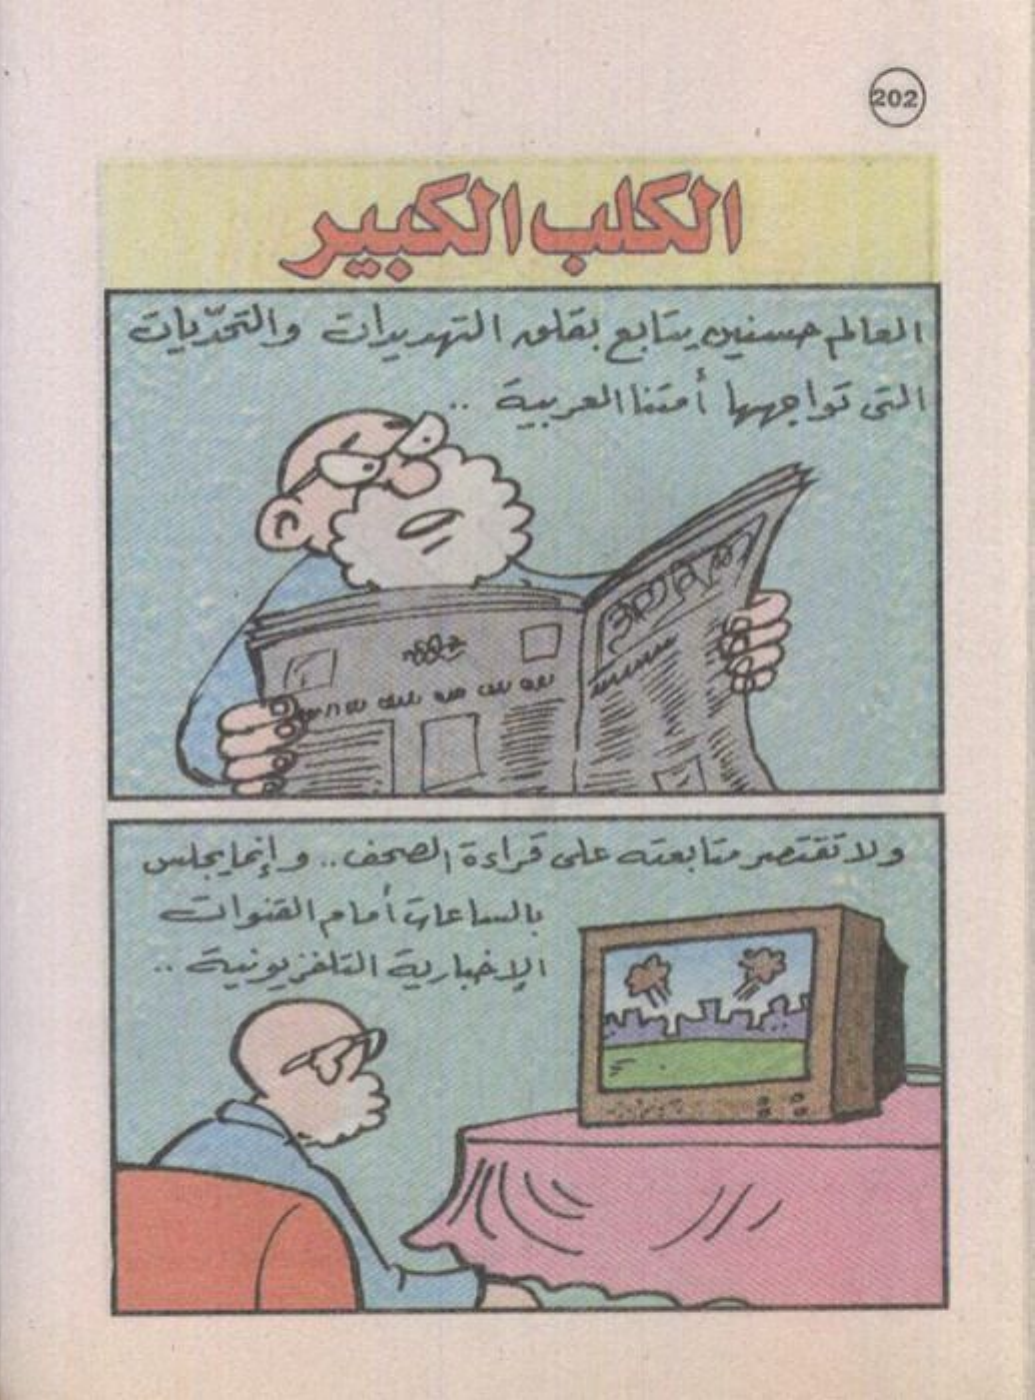 202
الكلب الكبير
العالم حسنين يتابع بقلق التهديدات والتحدّيات
التى تواجهها أمتنا العربية ..
ولا تقتصر متابعته على قراءة الصحف.. وإنما يجلس
بالساعات أمام القنوات
الإخبارية التلفزيونية ..